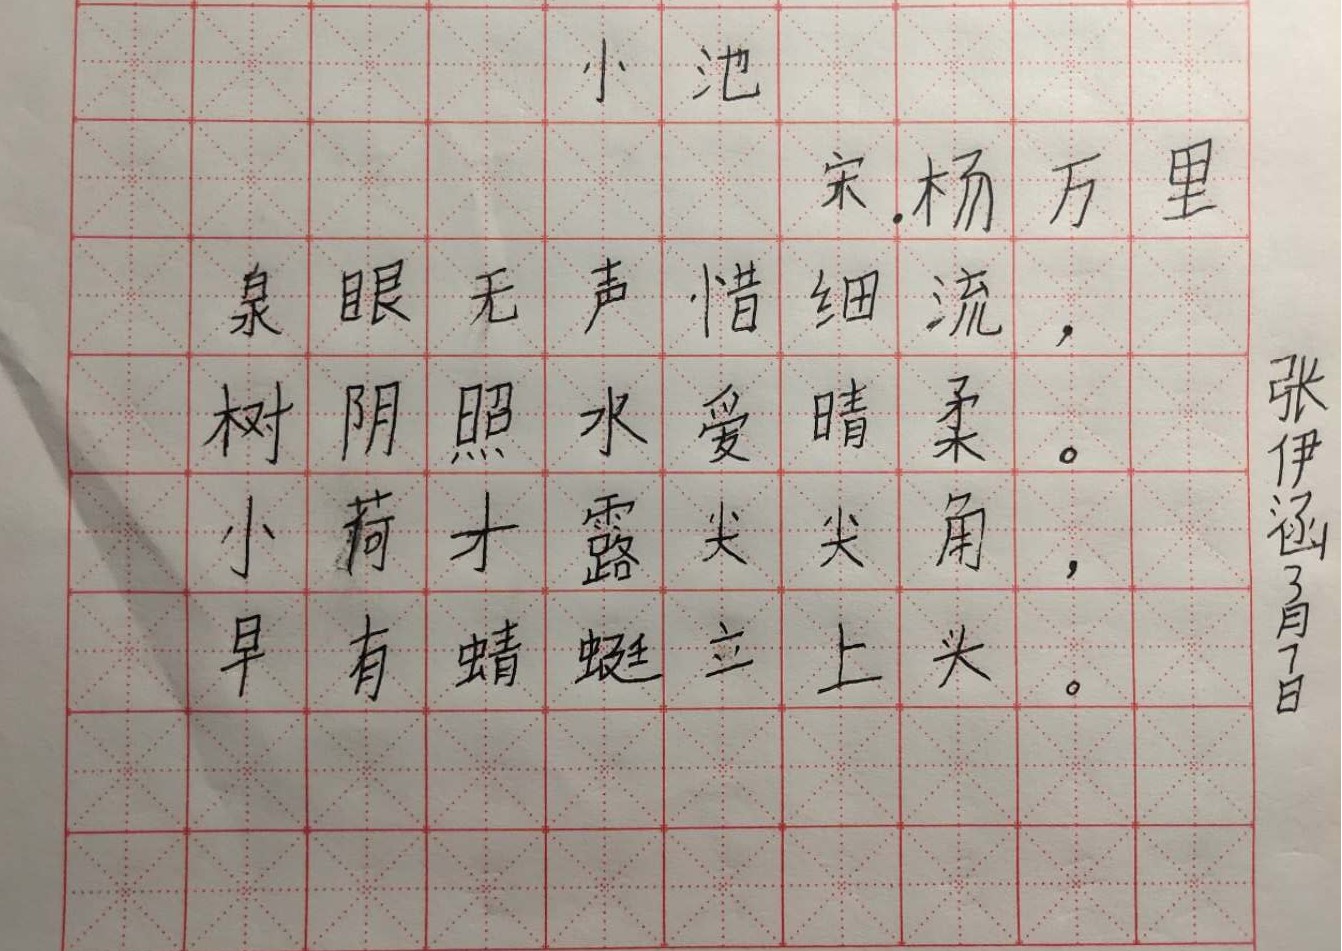 小池
宋.杨万里
泉眼无声惜细流，
树阴照水爱晴柔。
小荷才露尖尖角，
早有蜻蜓立上头。
张伊涵3月7日